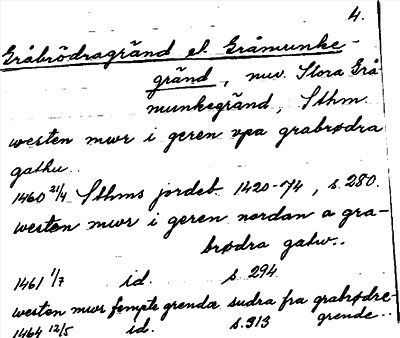 4.
Gråbrödragränd el. Gråmunke-
gränd, nuv. Stora Grå
munkegränd, Sthm.
westen mwr i geren vpa grabrødra
gathu..
1460 21/4 Sthms jordeb. 1420-74, s. 280.
westen mwr i geren nordan a gra-
brødra gatw..
1461 1/7 id. s. 294
westen mwr fempte grenda sudra fra grabrødre-
grende..
1464 12/5 id. s. 313